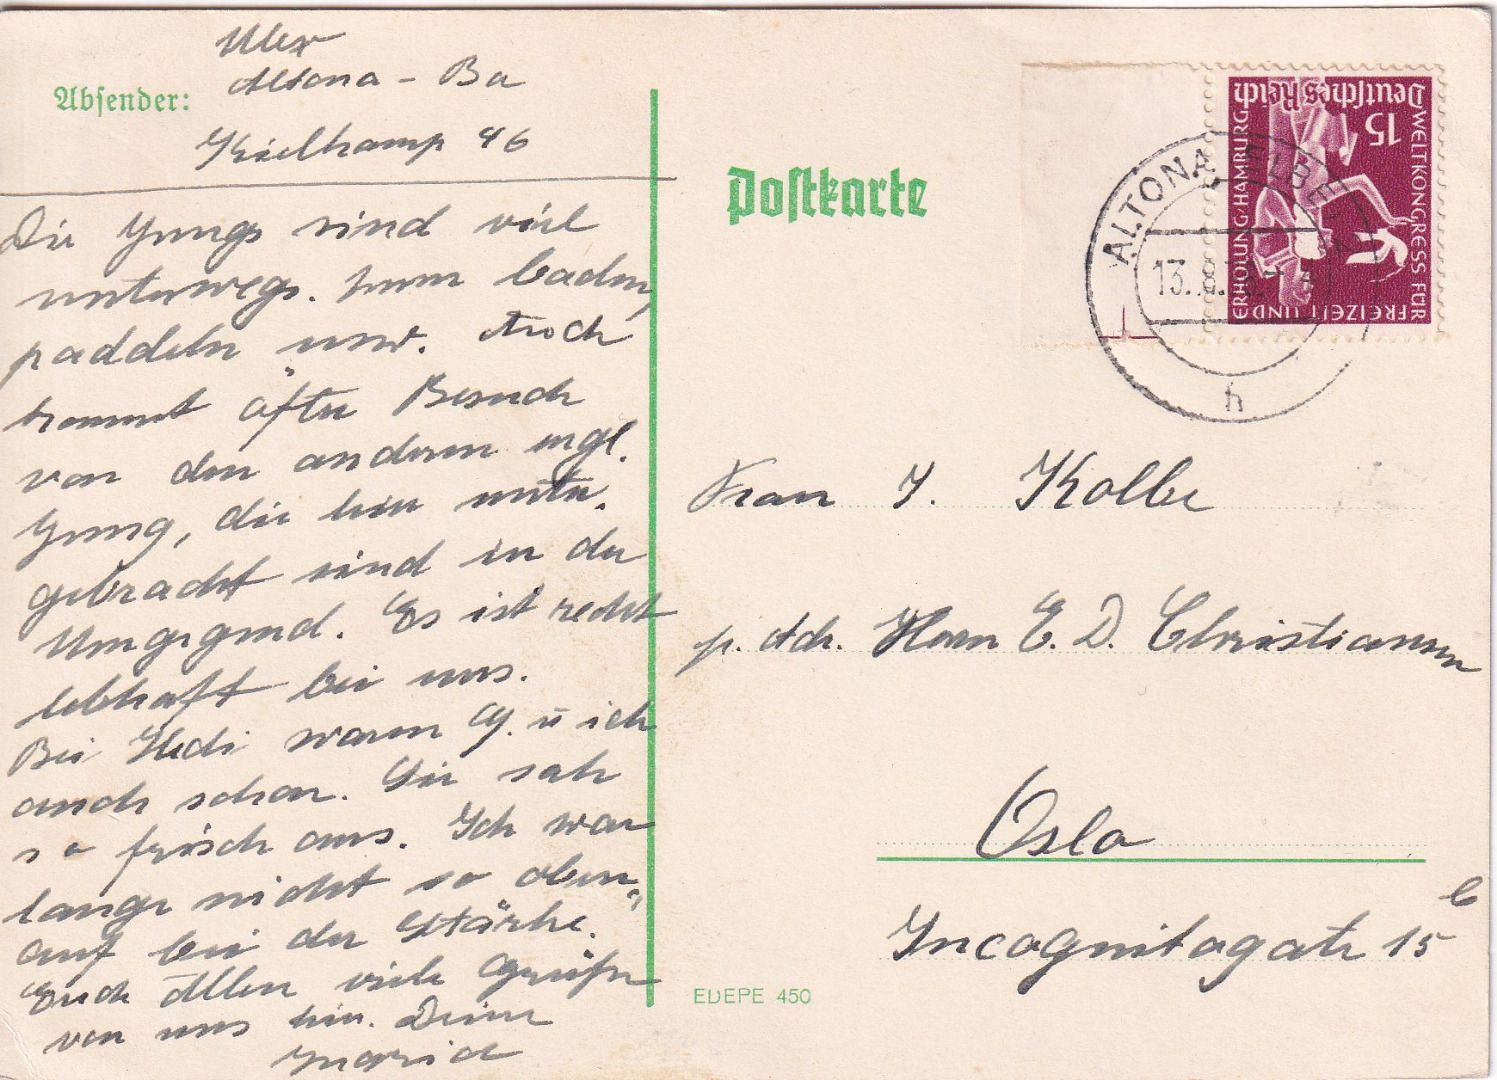 Absender:
Altona - Ba
Kielkamp 46
Die Jungs sind viel
unterwegs. zum baden,
paddeln usw. Auch
kommt öfter Besuch
von den anderen engl.
Jungs, die hier unter-
gebracht sind in der
Umgegend. Es ist recht
lebhaft bei uns.
Bei Hedi waren G. u ich
auch schon. Sie sah
so frisch aus. Ich war
lange nicht so oben"
auf bei der Stärke.
Euch Allen viele Grüße
von uns hier. Deine
Ingrid
Postkarte
Deutsches Reich
15
WELTKONGRESS FÜR
FREIZEIT UND
ERHOLUNG·HAMBURG
ALTONA, ELBE
13.8.
h
Frau J. Kolbe
p. Adr. Herrn E. D. Christiansen
Oslo
Incognitogate 15 b
EDEPE 450